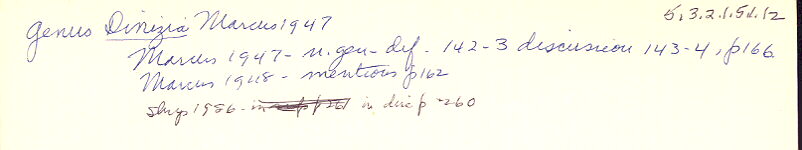 Genus Dinizia Marcus 1947 5.3.2.1.51.12
Marcus 1947 - n.gen - def - 142-3 discussion 143-4, p166
Marcus 1948 - mentions p162
1956 - in disc p 260